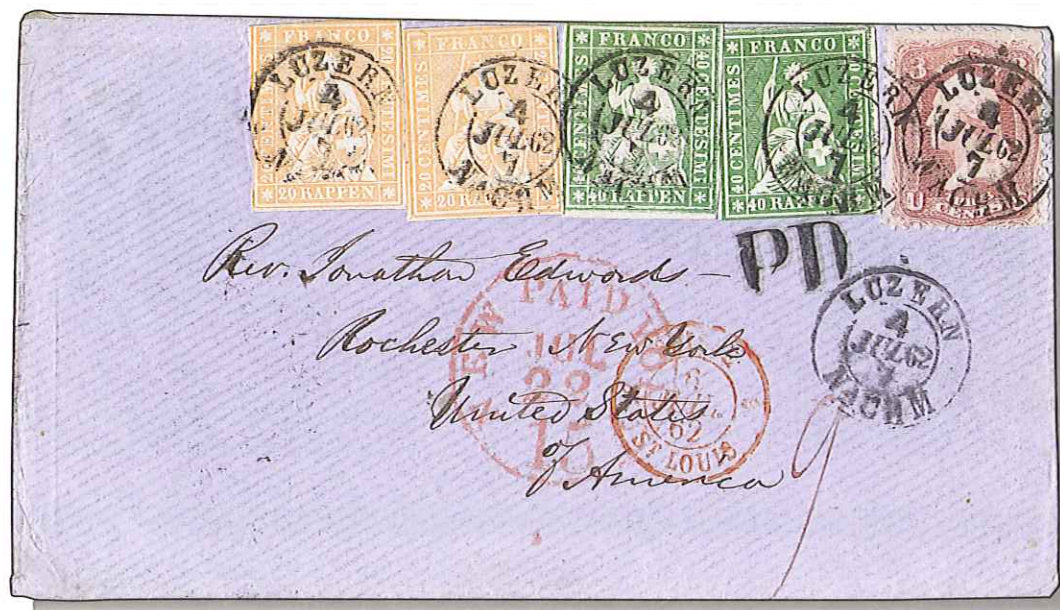 FRANCO
20 CENTIMES
20 RAPPEN
LUZERN
4
JUL 62
7
NACHM
FRANCO
20 CENTIMES
CENTESIMI
20 RAPPEN
LUZERN
4
JUL 62
7
NACHM
FRANCO
40 CENTIMES
40 CENTESIMI
40 RAPPEN
LUZERN
4
JUL 62
FRANCO
40 CENTIMES
40 RAPPEN
LUZERN
4
JUL 62
7
3
U
CENTS
LUZERN
4
JUL 62
7
NACHM
PD
LUZERN
4
JUL 62
7
NACHM
Rev. Jonathan Edwards —
Rochester New York
United States
of America
NEW PAID YORK
JUL
15
6
62
ST LOUIS
9